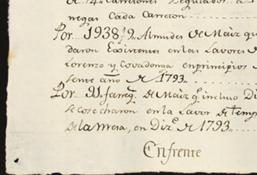 de 14 Carretones Regulador. a
negas Cada Carreton.
Por 1938 1/2 Almudes de Maiz qu
daron Existentes en las Lavores
Lorenzo y Covadonga en principios
sente año de 1793
Por faneg. de Maiz q.e incluso D
se cosecharon en la Lavor de temp
de la Mesa, en Diz.e de 1793
Enfrente